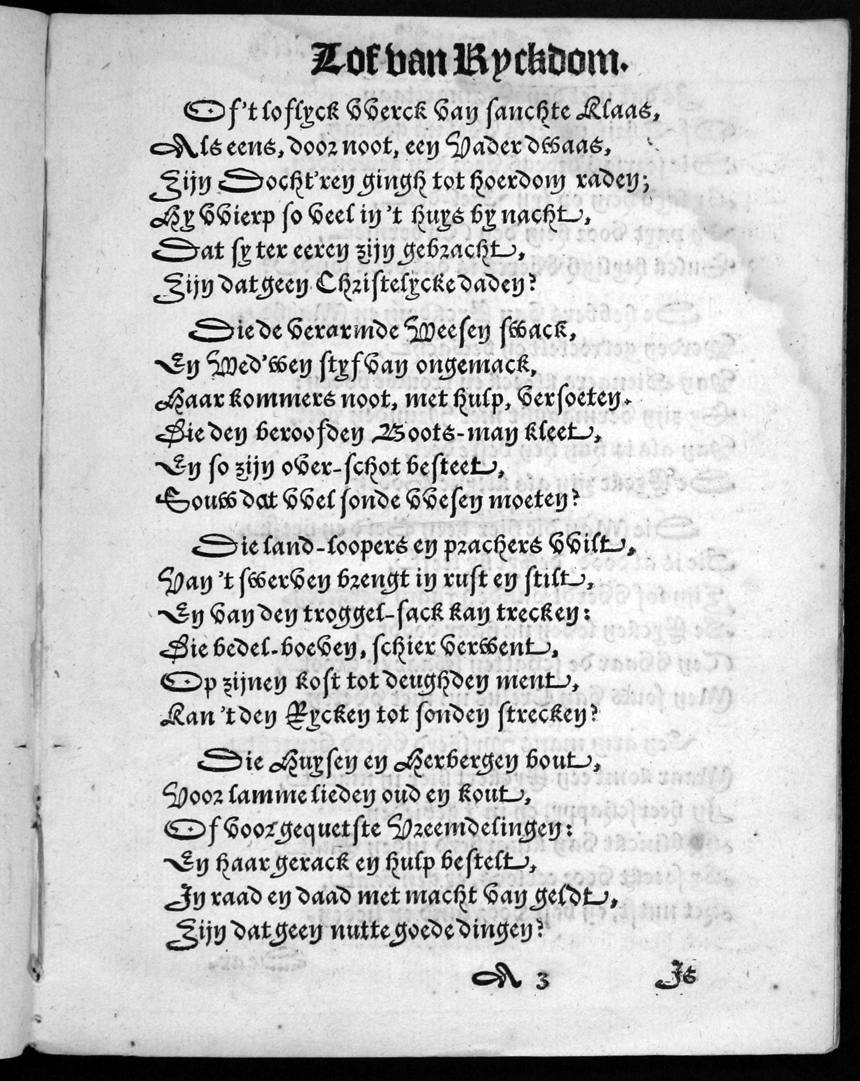 Lof van Ryckdom.
Of't loflyck vverck van sanchte Klaas,
Als eens, door noot, een Vader dwaas,
Zijn Docht'ren gingh tot hoerdom raden;
Hy vvierp so veel in 't huys by nacht,
Dat sy ter eeren zijn gebracht,
Zijn dat geen Christelycke daden?
Die de verarmde Weesen swack,
En Wed'wen styf van ongemack,
Haar kommers noot, met hulp, versoeten.
Die den beroofden Boots-man kleet,
En so zijn over-schot besteet,
Souw dat vvel sonde vvesen moeten?
Die land-loopers en prachers vvilt,
Van 't swerven brengt in rust en stilt,
En van den troggel-sack kan trecken:
Die bedel-boeven, schier verwent,
Op zijnen kost tot deughden ment,
Kan 't den Rycken tot sonden strecken?
Die Huysen en Herbergen bout,
Voor lamme lieden oud en kout,
Of voor gequetste Vreemdelingen:
En haar gerack en hulp bestelt,
In raad en daad met macht van geldt,
Zijn dat geen nutte goede dingen?
A 3 Is